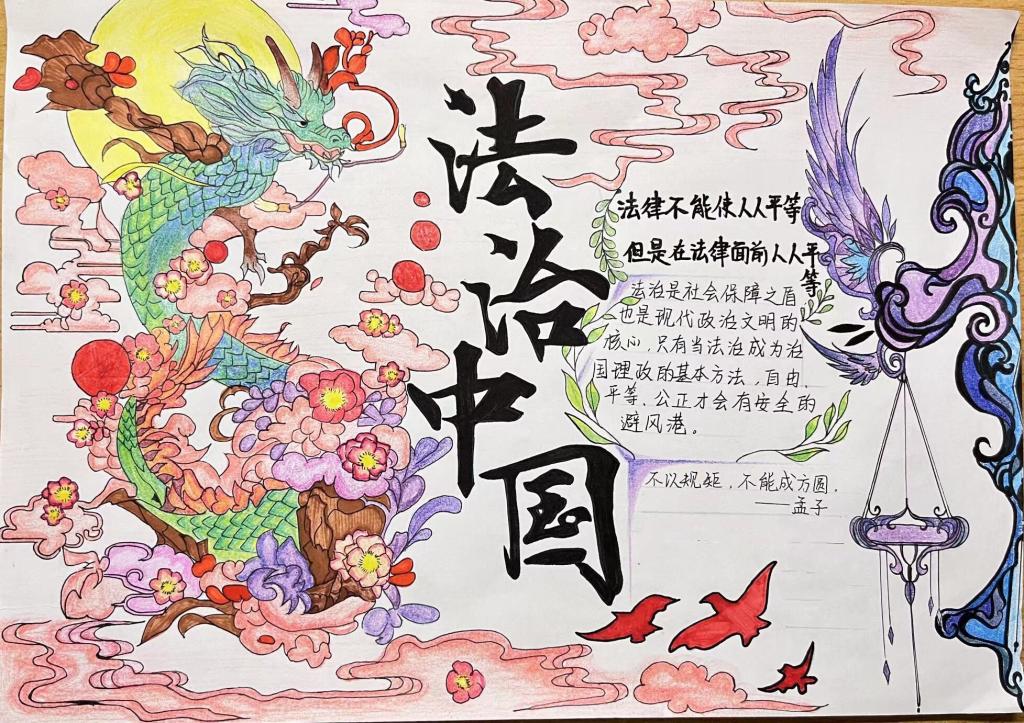 法治中国
法律不能使人人平等
但是在法律面前人人平
等
法治是社会保障之盾
也是现代政治文明的
核心，只有当法治成为治
国理政的基本方法，自由、
平等、公正才会有安全的
避风港。
不以规矩，不能成方圆。
——孟子